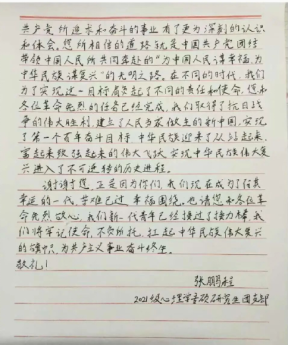 共产党所追求和奋斗的事业有了更为深刻的认识
和体会。您所相信的道路就是中国共产党团结
带领中国人民所共同奔赴的“为中国人民谋幸福，为
中华民族谋复兴”的光明之路。在不同的时代，我们
为了实现这一目标肩负起了不同的责任和使命。您和
各位革命先烈的任务已经完成，我们取得了抗日战
争的伟大胜利，建立了人民当家做主的新中国，实现
了第一个百年奋斗目标，中华民族迎来了从站起来、
富起来到强起来的伟大飞跃，实现中华民族伟大复
兴进入了不可逆转的历史进程。
谢谢您，正是因为你们，我们现在成为了
幸运的一代，苦难已过，幸福围绕，也请您和各位革
命先烈放心，我们新一代青年已经接过了接力棒，我
们将牢记使命，不负所托，扛起中华民族伟大复兴
的旗帜，为共产主义事业奋斗终生。
敬礼！
张鹏程
2021级心理学专硕研究生团支部